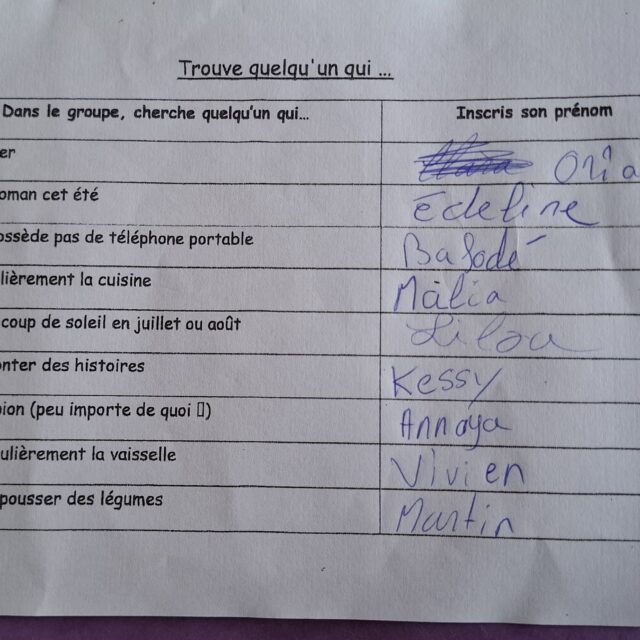 Trouve quelqu'un qui ...
Dans le groupe, cherche quelqu'un qui... Inscris son prénom
er
oman cet été Edeline
ossède pas de téléphone portable
lièrement la cuisine Malia
coup de soleil en juillet ou août Lilou
onter des histoires Kessy
pion (peu importe de quoi ▯) Annaya
ulièrement la vaisselle Vivien
pousser des légumes Martin